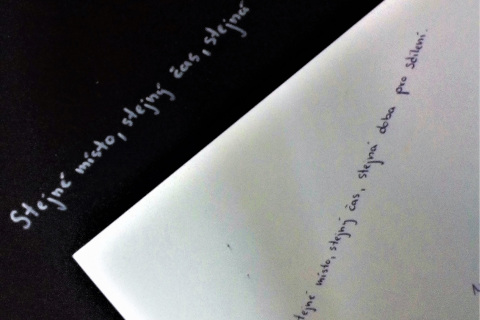 Stejné místo, stejný čas, stejná
tejné místo, stejný čas, stejná doba pro sdílení.